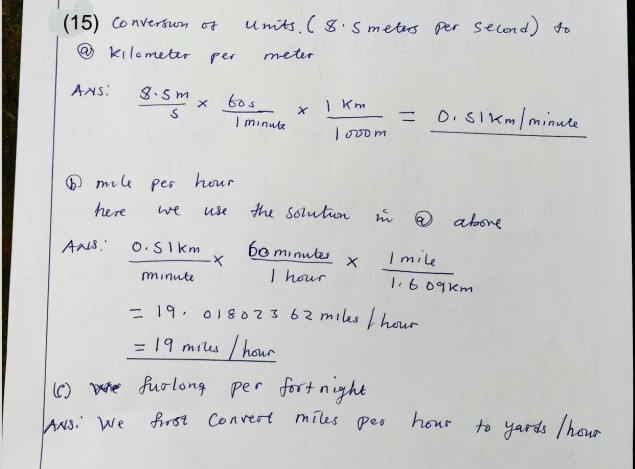 (15) Conversion of units. (8.5 meters per second) to
ⓐ kilometer per meter
Ans: 8.5 m / s × 60 s / 1 minute × 1 Km / 1000m = 0.51Km/minute
ⓑ mile per hour
here we use the solution in ⓐ above
Ans: 0.51Km / minute × 60 minutes / 1 hour × 1 mile / 1.609Km
= 19.01802362 miles / hour
= 19 miles / hour
(c) furlong per fortnight
Ans: We first Convert miles per hour to yards /hour